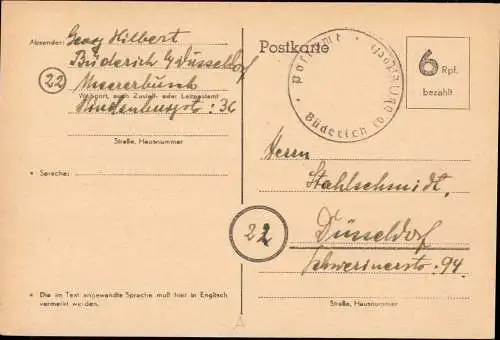 Absender: Georg Hilbert
Büderich b/ Düsseldorf
22 Meererbusch
Wohnort, auch Zustell- oder Leitpostamt
Hindenburgstr: 36
Straße, Hausnummer
* Sprache:
* Die im Text angewandte Sprache muß hier in Englisch
vermerkt werden.
Postkarte
6 Rpf.
bezahlt
Postamt
Büderich
Herrn
Stahlschmidt,
22 Düsseldorf
Schwerinerstr. 94.
Straße, Hausnummer
A